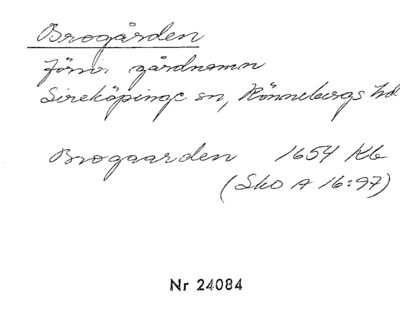 Brogården
försv. gårdnamn
Sireköpinge sn, Rönnebergs hd
Brogaarden 1654 Kb
(Sko A 16:97)
Nr 24084